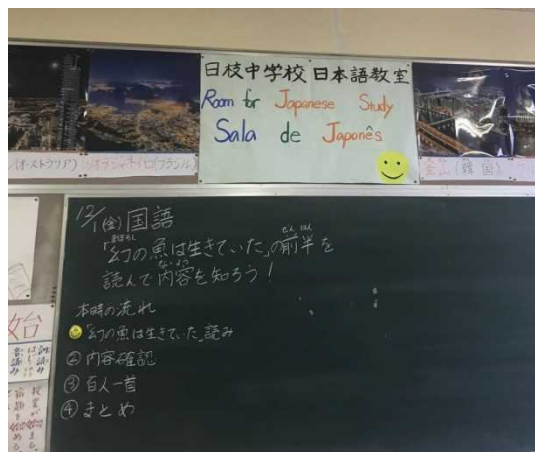 日枝中学校 日本語教室
Room for Japanese Study
Sala de Japonês
(オーストラリア)
リオデジャネイロ(ブラジル)
釜山(韓国)
12/1(金)国語
まぼろし
ぜんはん
「幻の魚は生きていた」の前半を
ないよう
読んで内容を知ろう!
本時の流れ
「幻の魚は生きていた」読み
②内容確認
③百人一首
④まとめ
始